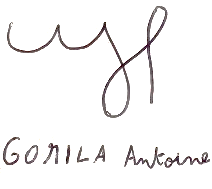 GOMILA Antoine